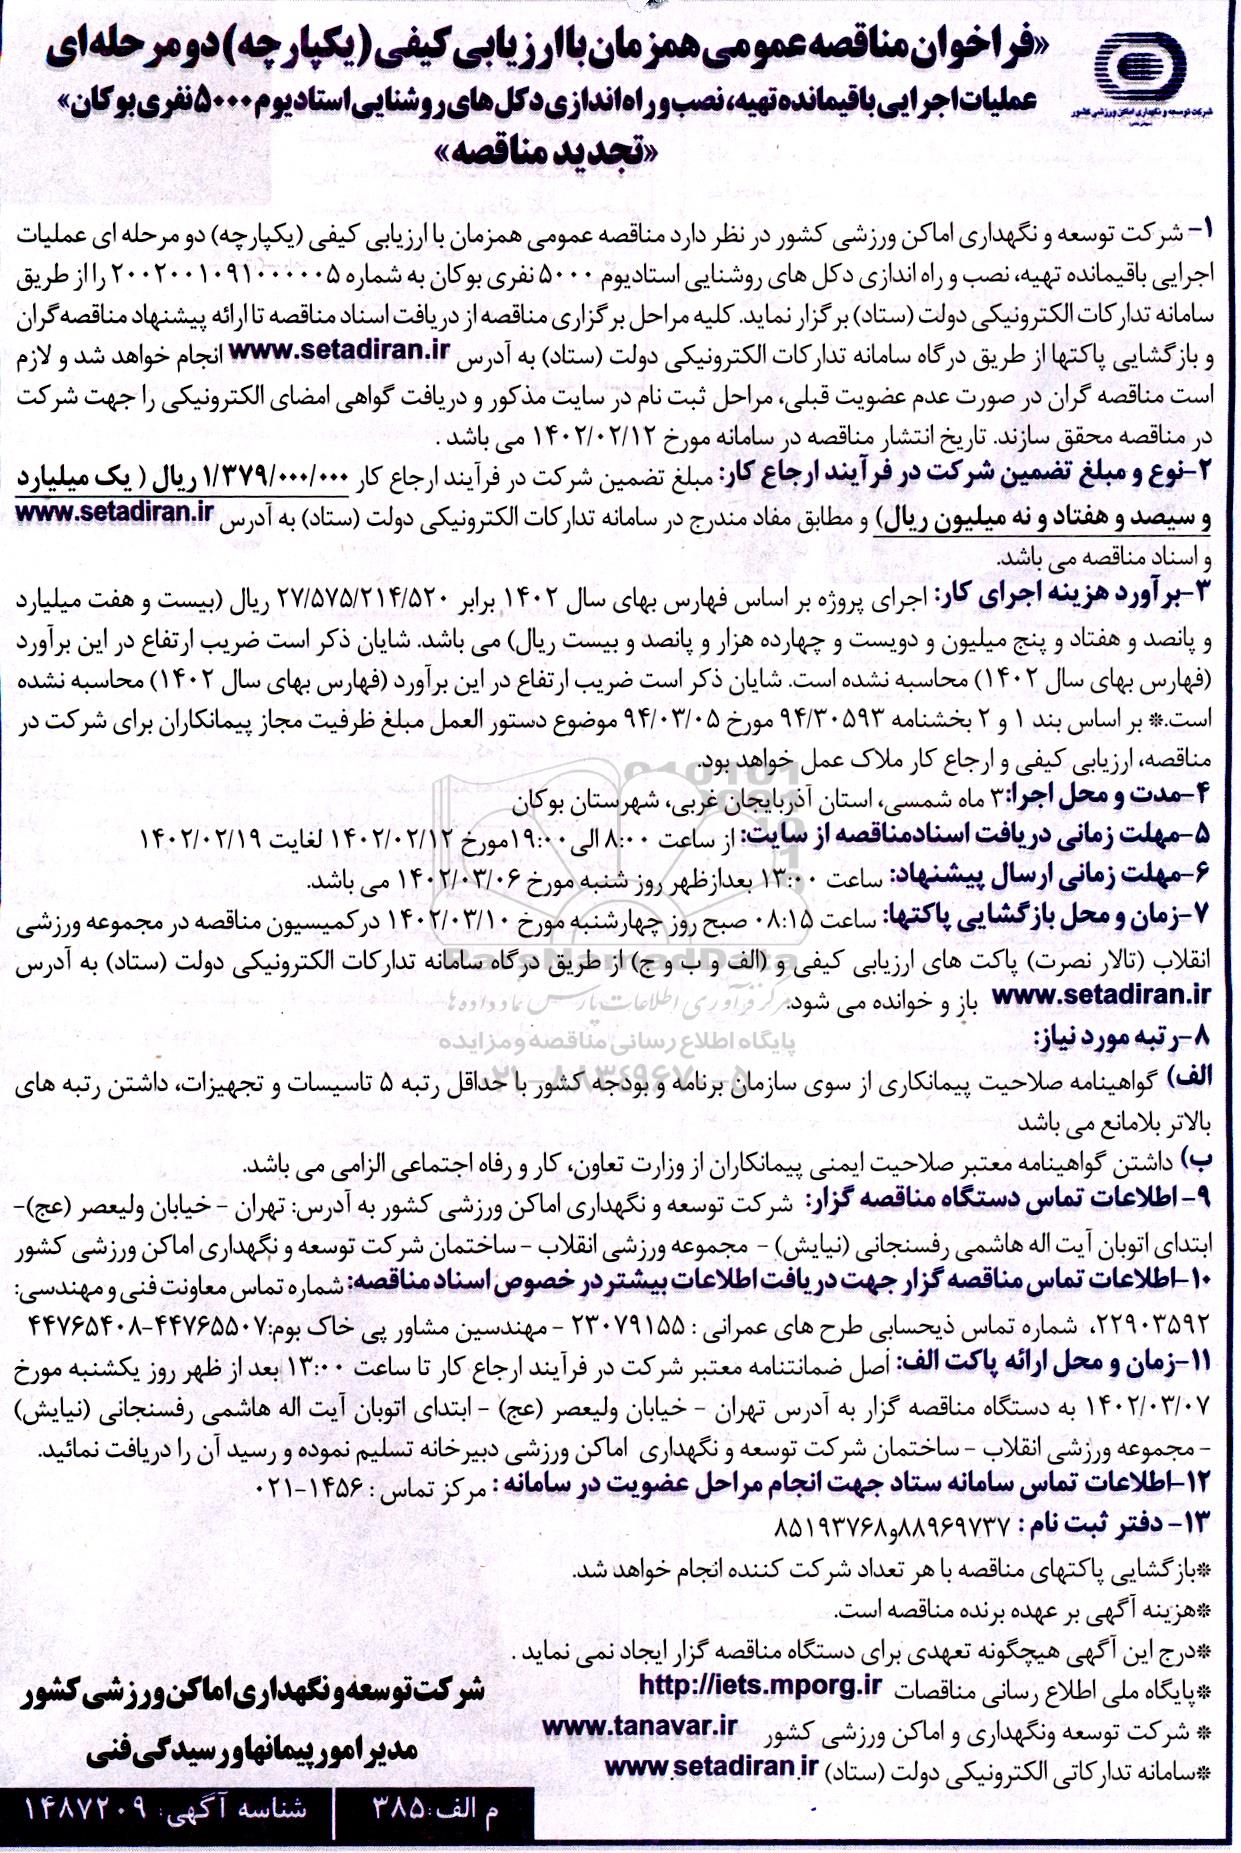 «فراخوان مناقصه عمومی همزمان با ارزیابی کیفی (یکپارچه) دو مرحله‌ای
عملیات اجرایی باقیمانده تهیه، نصب و راه اندازی دکل های روشنایی استادیوم ۵۰۰۰ نفری بوکان»
«تجدید مناقصه»
شرکت توسعه و نگهداری اماکن ورزشی کشور
۱- شرکت توسعه و نگهداری اماکن ورزشی کشور در نظر دارد مناقصه عمومی همزمان با ارزیابی کیفی (یکپارچه) دو مرحله ای عملیات
اجرایی باقیمانده تهیه، نصب و راه اندازی دکل های روشنایی استادیوم ۵۰۰۰ نفری بوکان به شماره ۲۰۰۲۰۰۱۰۹۱۰۰۰۰۰۵ را از طریق
سامانه تدارکات الکترونیکی دولت (ستاد) برگزار نماید. کلیه مراحل برگزاری مناقصه از دریافت اسناد مناقصه تا ارائه پیشنهاد مناقصه‌گران
و بازگشایی پاکتها از طریق درگاه سامانه تدارکات الکترونیکی دولت (ستاد) به آدرس www.setadiran.ir انجام خواهد شد و لازم
است مناقصه گران در صورت عدم عضویت قبلی، مراحل ثبت نام در سایت مذکور و دریافت گواهی امضای الکترونیکی را جهت شرکت
در مناقصه محقق سازند. تاریخ انتشار مناقصه در سامانه مورخ ۱۴۰۲/۰۲/۱۲ می باشد .
۲-نوع و مبلغ تضمین شرکت در فرآیند ارجاع کار: مبلغ تضمین شرکت در فرآیند ارجاع کار ۱/۳۷۹/۰۰۰/۰۰۰ ریال ( یک میلیارد
و سیصد و هفتاد و نه میلیون ریال) و مطابق مفاد مندرج در سامانه تدارکات الکترونیکی دولت (ستاد) به آدرس www.setadiran.ir
و اسناد مناقصه می باشد.
۳-برآورد هزینه اجرای کار: اجرای پروژه بر اساس فهارس بهای سال ۱۴۰۲ برابر ۲۷/۵۷۵/۲۱۴/۵۲۰ ریال (بیست و هفت میلیارد
و پانصد و هفتاد و پنج میلیون و دویست و چهارده هزار و پانصد و بیست ریال) می باشد. شایان ذکر است ضریب ارتفاع در این برآورد
(فهارس بهای سال ۱۴۰۲) محاسبه نشده است. شایان ذکر است ضریب ارتفاع در این برآورد (فهارس بهای سال ۱۴۰۲) محاسبه نشده
است.* بر اساس بند ۱ و ۲ بخشنامه ۹۴/۳۰۵۹۳ مورخ ۹۴/۰۳/۰۵ موضوع دستور العمل مبلغ ظرفیت مجاز پیمانکاران برای شرکت در
مناقصه، ارزیابی کیفی و ارجاع کار ملاک عمل خواهد بود.
۴-مدت و محل اجرا:۳ ماه شمسی، استان آذربایجان غربی، شهرستان بوکان
۵-مهلت زمانی دریافت اسنادمناقصه از سایت: از ساعت ۸:۰۰ الی ۱۹:۰۰مورخ ۱۴۰۲/۰۲/۱۲ لغایت ۱۴۰۲/۰۲/۱۹
۶-مهلت زمانی ارسال پیشنهاد: ساعت ۱۳:۰۰ بعدازظهر روز شنبه مورخ ۱۴۰۲/۰۳/۰۶ می باشد.
۷-زمان و محل بازگشایی پاکتها: ساعت ۰۸:۱۵ صبح روز چهارشنبه مورخ ۱۴۰۲/۰۳/۱۰ درکمیسیون مناقصه در مجموعه ورزشی
انقلاب (تالار نصرت) پاکت های ارزیابی کیفی و (الف و ب و ج) از طریق درگاه سامانه تدارکات الکترونیکی دولت (ستاد) به آدرس
www.setadiran.ir باز و خوانده می شود.
ParsNamadData
مرکز فرآوری اطلاعات پارس نماد داده ها
پایگاه اطلاع رسانی مناقصه و مزایده
۰۲۱-۸۸۳۴۹۶۷۰-۵
۸-رتبه مورد نیاز:
الف) گواهینامه صلاحیت پیمانکاری از سوی سازمان برنامه و بودجه کشور با حداقل رتبه ۵ تاسیسات و تجهیزات، داشتن رتبه های
بالاتر بلامانع می باشد
ب) داشتن گواهینامه معتبر صلاحیت ایمنی پیمانکاران از وزارت تعاون، کار و رفاه اجتماعی الزامی می باشد.
۹- اطلاعات تماس دستگاه مناقصه گزار: شرکت توسعه و نگهداری اماکن ورزشی کشور به آدرس: تهران - خیابان ولیعصر (عج)-
ابتدای اتوبان آیت اله هاشمی رفسنجانی (نیایش) - مجموعه ورزشی انقلاب -ساختمان شرکت توسعه و نگهداری اماکن ورزشی کشور
۱۰-اطلاعات تماس مناقصه گزار جهت دریافت اطلاعات بیشتر در خصوص اسناد مناقصه: شماره تماس معاونت فنی و مهندسی:
۲۲۹۰۳۵۹۲، شماره تماس ذیحسابی طرح های عمرانی : ۲۳۰۷۹۱۵۵ - مهندسین مشاور پی خاک بوم:۴۴۷۶۵۵۰۷-۴۴۷۶۵۴۰۸
۱۱-زمان و محل ارائه پاکت الف: اصل ضمانتنامه معتبر شرکت در فرآیند ارجاع کار تا ساعت ۱۳:۰۰ بعد از ظهر روز یکشنبه مورخ
۱۴۰۲/۰۳/۰۷ به دستگاه مناقصه گزار به آدرس تهران - خیابان ولیعصر (عج) - ابتدای اتوبان آیت اله هاشمی رفسنجانی (نیایش)
- مجموعه ورزشی انقلاب - ساختمان شرکت توسعه و نگهداری اماکن ورزشی دبیرخانه تسلیم نموده و رسید آن را دریافت نمائید.
۱۲-اطلاعات تماس سامانه ستاد جهت انجام مراحل عضویت در سامانه : مرکز تماس : ۱۴۵۶-۰۲۱
۱۳- دفتر ثبت نام : ۸۸۹۶۹۷۳۷و۸۵۱۹۳۷۶۸
*بازگشایی پاکتهای مناقصه با هر تعداد شرکت کننده انجام خواهد شد.
*هزینه آگهی بر عهده برنده مناقصه است.
*درج این آگهی هیچگونه تعهدی برای دستگاه مناقصه گزار ایجاد نمی نماید .
*پایگاه ملی اطلاع رسانی مناقصات http://iets.mporg.ir
* شرکت توسعه ونگهداری و اماکن ورزشی کشور www.tanavar.ir
*سامانه تدارکاتی الکترونیکی دولت (ستاد) www.setadiran.ir
شرکت توسعه و نگهداری اماکن ورزشی کشور
مدیر امور پیمانها و رسیدگی فنی
م الف:۳۸۵
شناسه آگهی: ۱۴۸۷۲۰۹